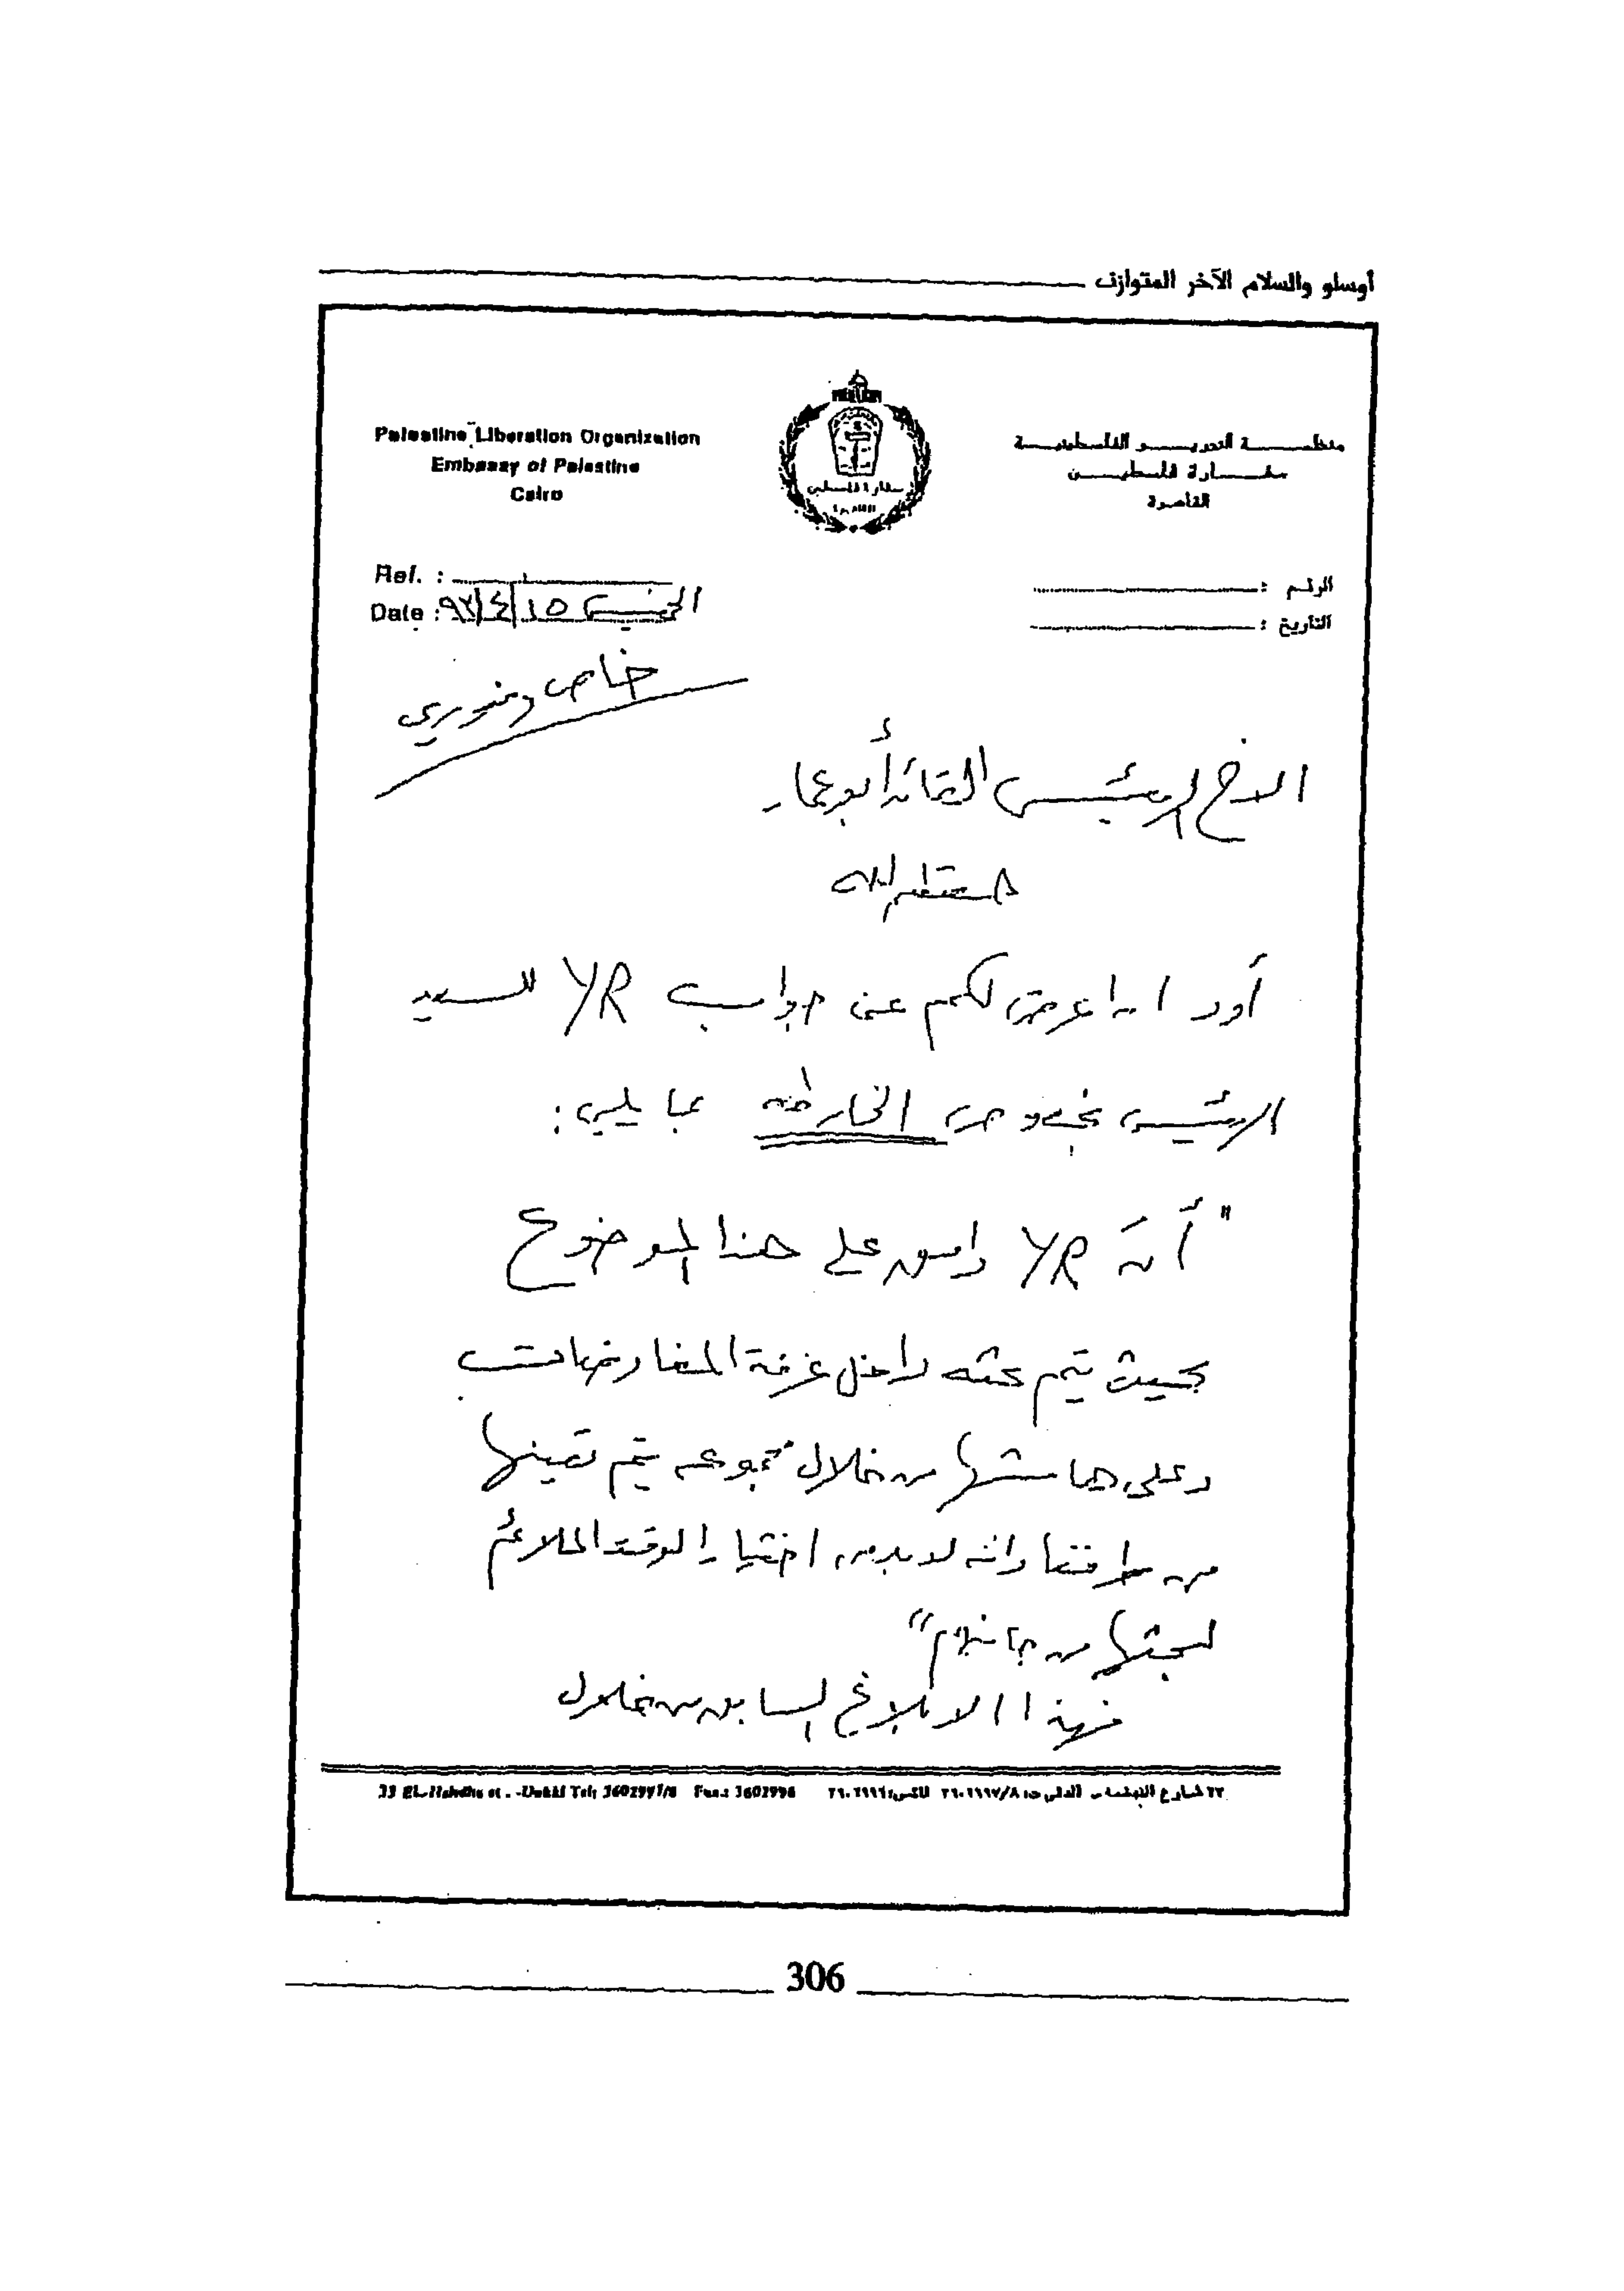 أوسلو والسلام الآخر المتوازن
Palestine Liberation Organization
Embassy of Palestine
Cairo
سفارة فلسطين
القاهرة
منظمة التحرير الفلسطينية
سفارة فلسطين
القاهرة
Ref. :
Date : الخميس ٩٣/٤/١٥
الرقم :
التاريخ :
خاص وفوري
الاخ الرئيس القائد أبو عمار
حفظه الله
أود ان اعرض لكم عن جواب YR للسيد
الرئيس بخصوص الخارطة بما يلي:
"أنّ YR وافق على هذا الموضوع
بحيث يتم بحثه داخل غرفة المفاوضات
وعلى هامشها من خلال مجموعه يتم تعينها
من طرفنا وانه لا بد من اختيار الوقت الملائم
لبحثها من جانبكم"
فهذا الابلاغ السابق من خلال
33 El-Nahdha st. - Dokki Tel: 3602997/8 Fax.: 3602996
٣٣ شارع النهضة - الدقى ت: ٣٦٠٢٩٩٧/٨ فاكس: ٣٦٠٢٩٩٦
306